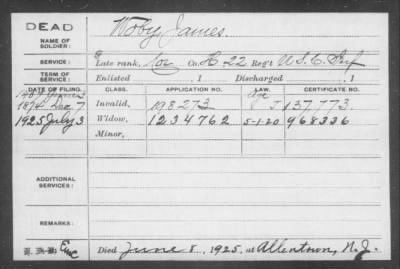 DEAD
NAME OF SOLDIER: Woby, James.
SERVICE: Late rank, Co. H-22 Reg't U.S.C. Inf
TERM OF SERVICE: Enlisted , 1 Discharged , 1
DATE OF FILING. CLASS. APPLICATION NO. LAW. CERTIFICATE NO.
age
1874 Dec 7 Invalid, 198273 J 137,773.
1925 July 3 Widow, 1234762 5-1-20 968336
Minor,
ADDITIONAL SERVICES:
REMARKS:
Died June 8, 1925, at Allentown, N.J.